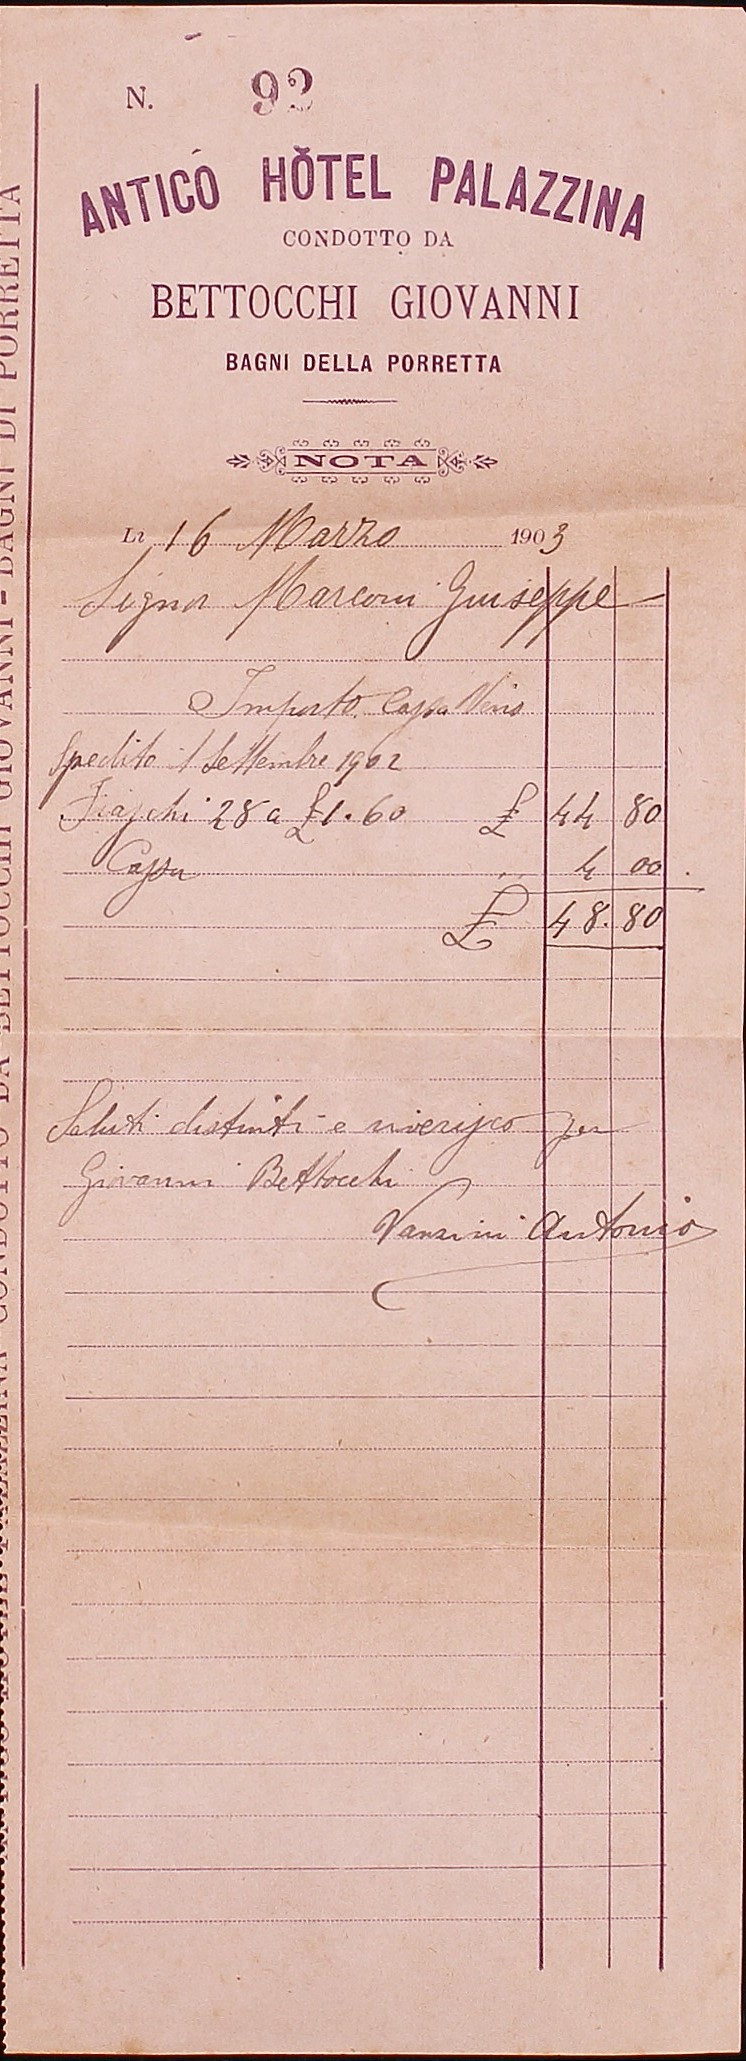 N. 92
ANTICO HÔTEL PALAZZINA
CONDOTTO DA
BETTOCCHI GIOVANNI
BAGNI DELLA PORRETTA
NOTA
Li 16 Marzo 1903
Signor Marconi Giuseppe
Importo Cassa Vino
Spedito 1 Settembre 1902
Fiaschi 28 a £ 1.60 £ 44 80
Cassa " 4 00
£ 48.80
Saluti distinti e riverisco per
Giovanni Bettocchi
Vanzini Antonio
CONDOTTO DA BETTOCCHI GIOVANNI - BAGNI DI PORRETTA